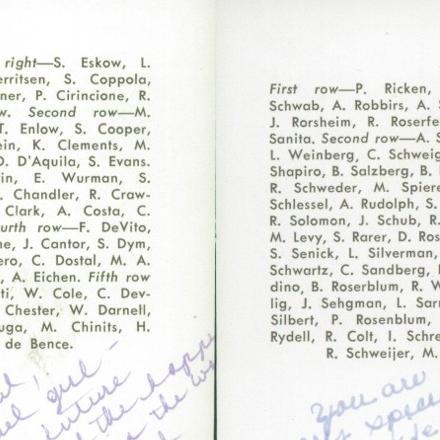 right—S. Eskow, L.
erritsen, S. Coppola,
ner, P. Cirincione, R.
w. Second row—M.
T. Enlow, S. Cooper,
ein, K. Clements, M.
D. D'Aquila, S. Evans.
in, E. Wurman, S.
Chandler, R. Craw-
Clark, A. Costa, C.
urth row—F. DeVito,
ne, J. Cantor, S. Dym,
ero, C. Dostal, M. A.
, A. Eichen. Fifth row
ti, W. Cole, C. Dev-
Chester, W. Darnell,
uga, M. Chinits, H.
de Bence.
girl—
future
the happ
the w
First row—P. Ricken,
Schwab, A. Robbirs, A. S
J. Rorsheim, R. Roserfe
Sanita. Second row—A. S
L. Weinberg, C. Schweig
Shapiro, B. Salzberg, B.
R. Schweder, M. Spiere
Schlessel, A. Rudolph, S.
R. Solomon, J. Schub, R.
M. Levy, S. Rarer, D. Ros
S. Senick, L. Silverman,
Schwartz, C. Sandberg,
dino, B. Roserblum, R. W
lig, J. Sehgman, L. Sarr
Silbert, P. Rosenblum,
Rydell, R. Colt, I. Schre
R. Schweijer, M.
you are